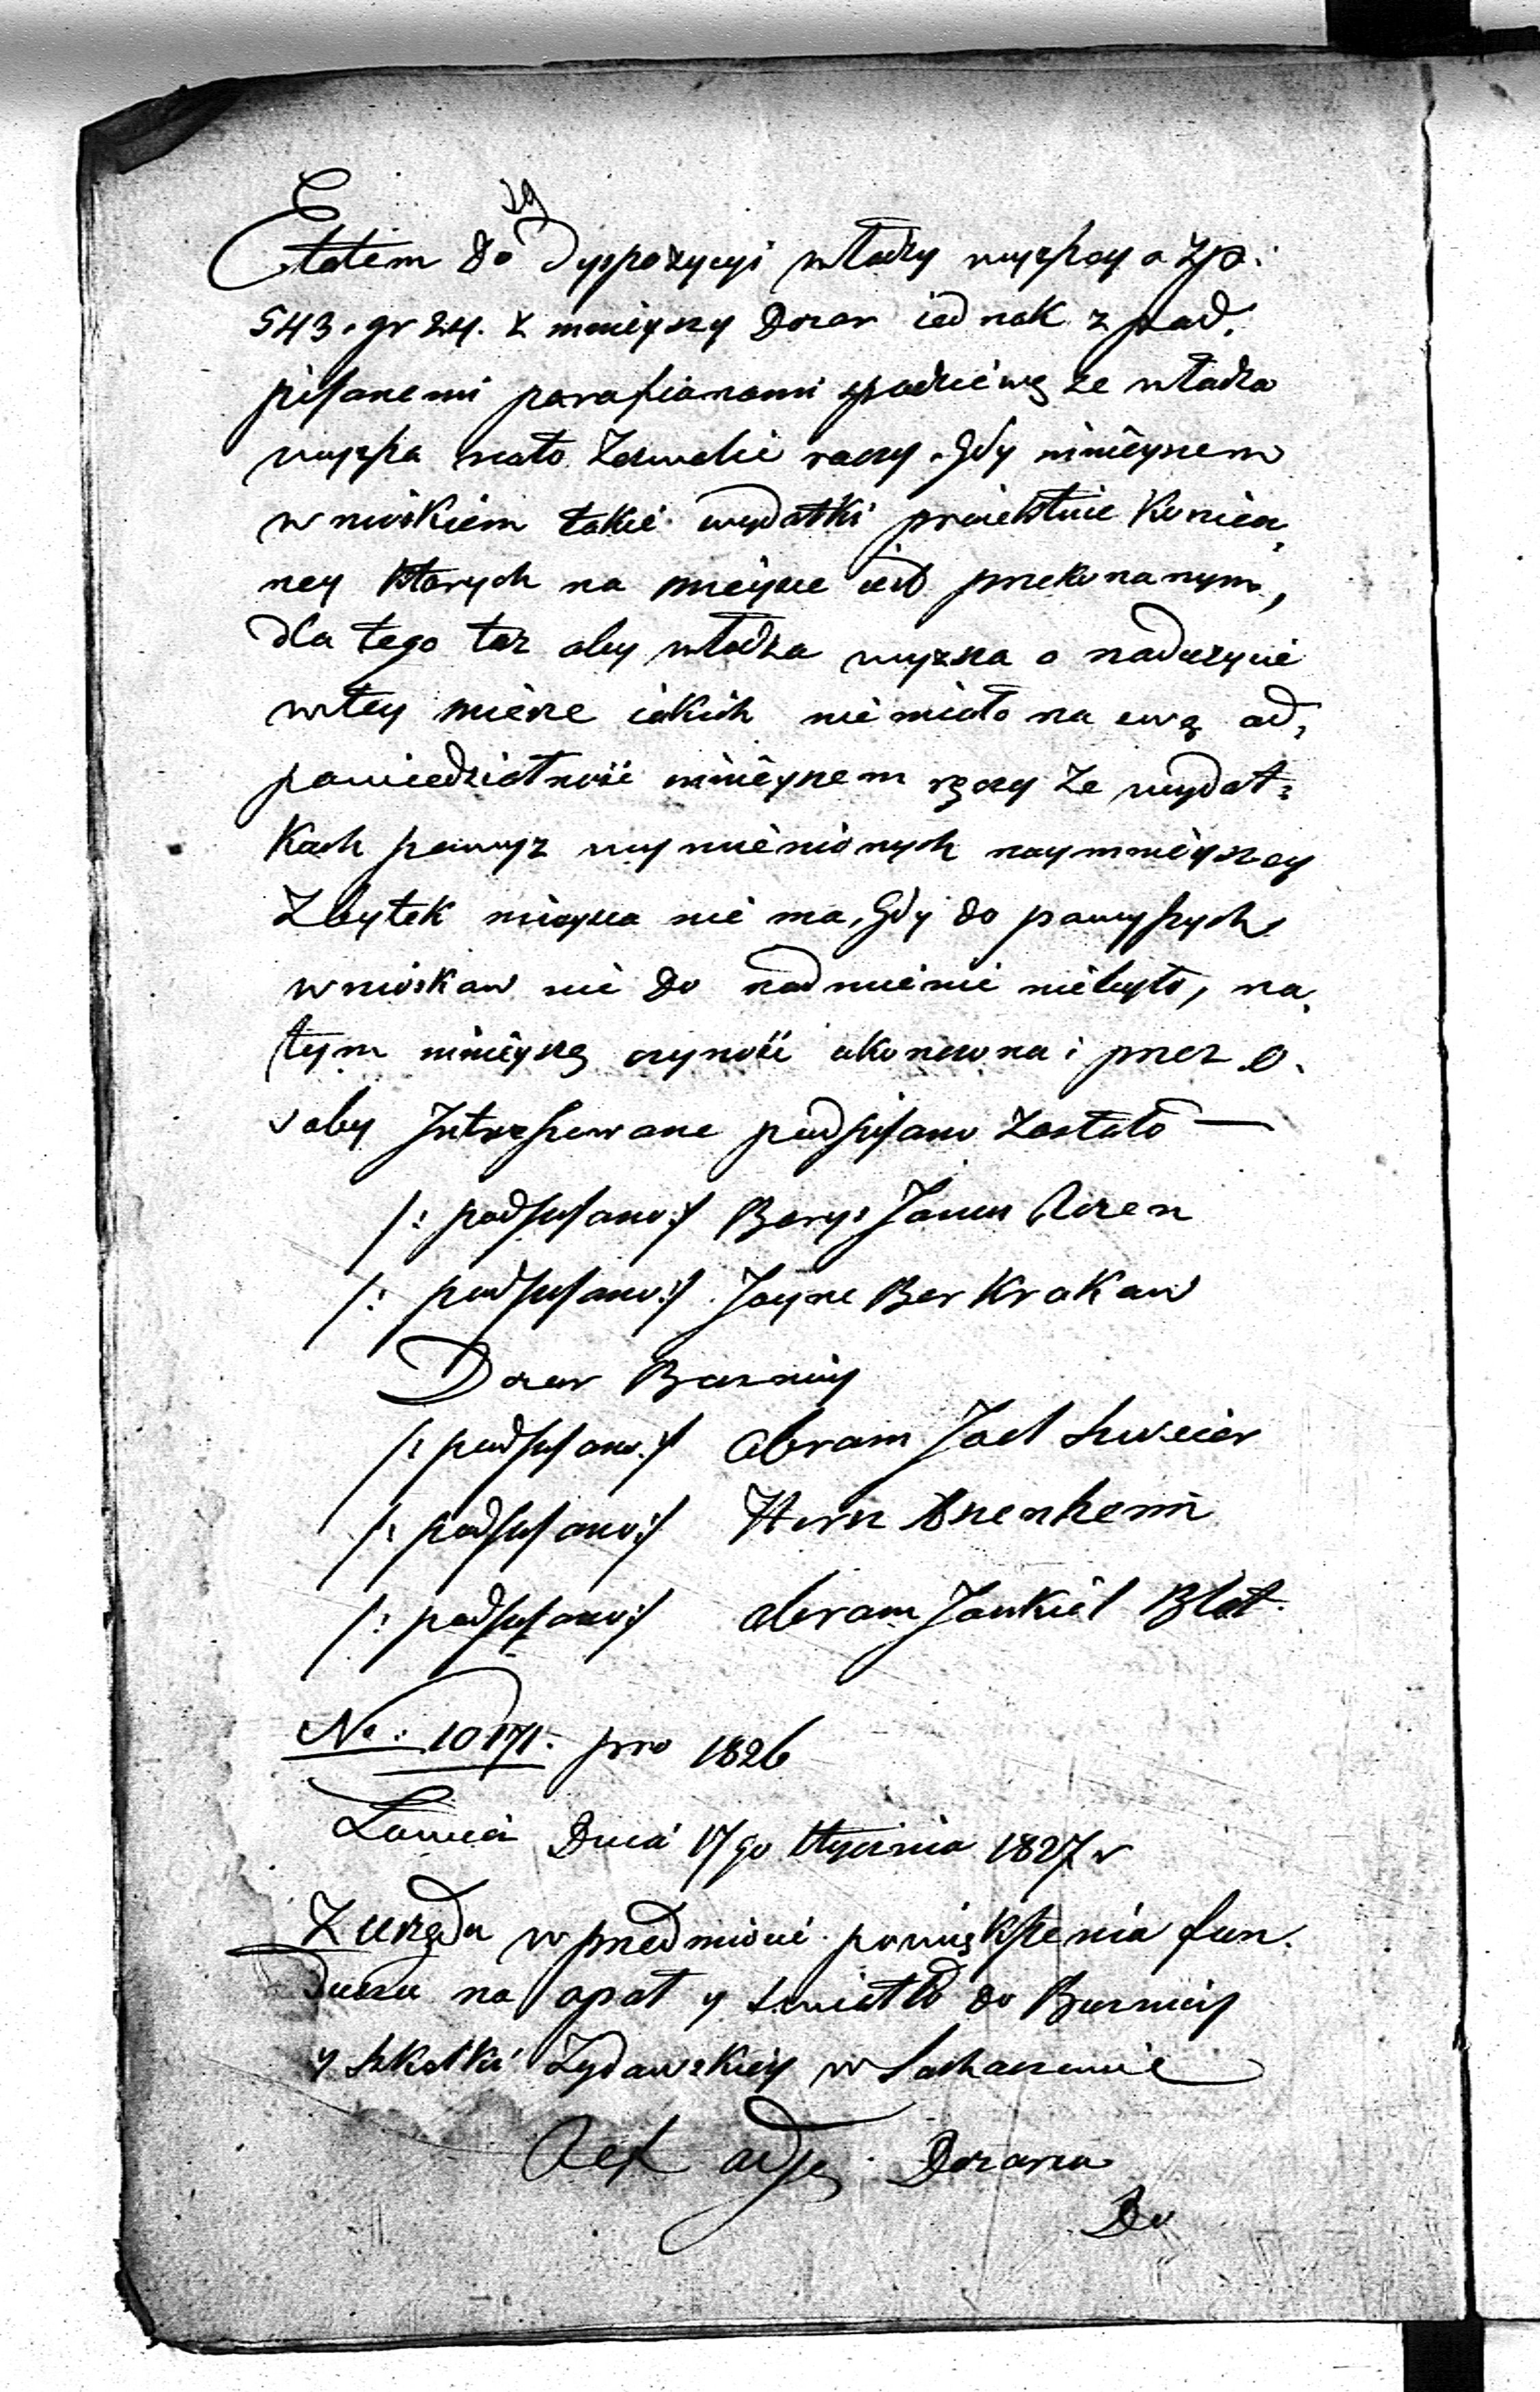 Etatem do Dyspozycyi władzy wyzszey o zp:
543. gr 24. z mnieyszy Dozor iednak z pod,
pisanemi parafianami spodziewę ze władza
wyzsza na to zezwolic raczy. Gdy ninieyszem
wnioskiem takie wydatki proiektuie koniecz,
ney ktorych na mieysce iest przekonanym,
dla tego tez aby władza wyzsza o naduzycie
wtey mierze iakich niemiało na swą od,
powiedzialność ninieyszem ręczy ze wydat:
kach powyz wymienionych naymnieyszey
Zbytek mieysca nie ma, Gdy do powyszych
wnioskow nic do nadmienie niebyło, na,
tym ninieyszą czyność ukonczona i przez o.
soby Intressowane podpisano zostało —
/: podpisano:/ Berys Jonas Rozen
/: podpisano:/ Joyne Ber Krakow
Dozor Boznicy
/: podpisano:/ Abram Joel Szweicer
/: podpisano:/ Hersz Oszenheim
/: podpisano:/ Abram Jankiel Blat.
No: 10171. pro 1826
Łowicz Dnia 17go Stycznia 1827 r
Z urzędu w przedmiocie powiększenia fun.
duszu na opał y swiatło do Boznicy
y szkolki Zydowskiey w Sochaczewie
Dozoru
Do